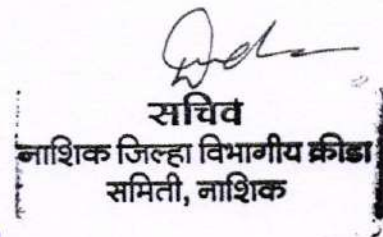 सचिव
नाशिक जिल्हा विभागीय क्रीडा
समिती, नाशिक